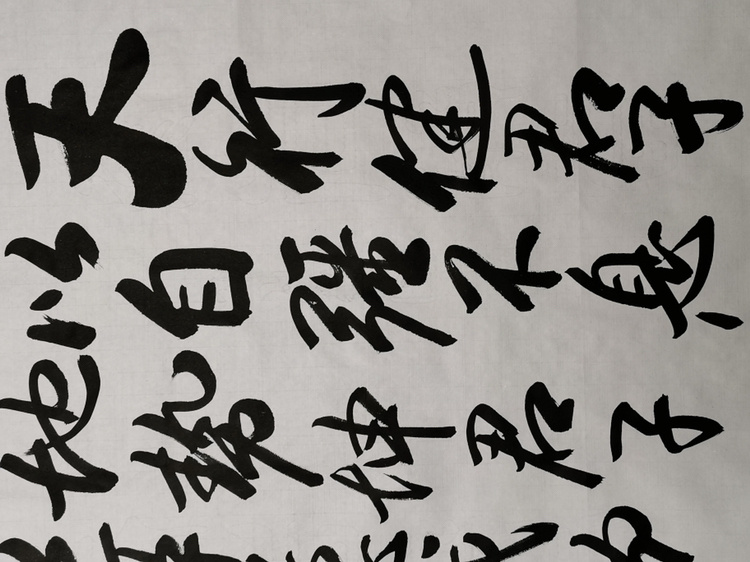 天行健君子
以自强不息
地势坤君子